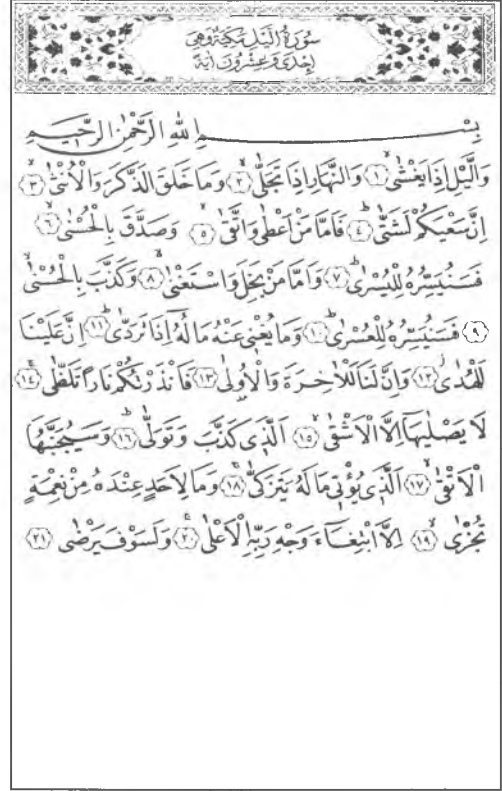 سُورَةُ الَّيْلِ مَكِّيَّةٌ وَهِيَ
اِحْدٰى وَعِشْرُونَ اٰيَةً
بِسْمِ اللّٰهِ الرَّحْمٰنِ الرَّحٖيمِ
وَالَّيْلِ اِذَا يَغْشٰىۙ ﴿١﴾ وَالنَّهَارِ اِذَا تَجَلّٰىۙ ﴿٢﴾ وَمَا خَلَقَ الذَّكَرَ وَالْاُنْثٰىۙ ﴿٣﴾
اِنَّ سَعْيَكُمْ لَشَتّٰىۜ ﴿٤﴾ فَاَمَّا مَنْ اَعْطٰى وَاتَّقٰىۙ ﴿٥﴾ وَصَدَّقَ بِالْحُسْنٰىۙ ﴿٦﴾
فَسَنُيَسِّرُهُ لِلْيُسْرٰىۜ ﴿٧﴾ وَاَمَّا مَنْ بَخِلَ وَاسْتَغْنٰىۙ ﴿٨﴾ وَكَذَّبَ بِالْحُسْنٰىۙ
﴿٩﴾ فَسَنُيَسِّرُهُ لِلْعُسْرٰىۜ ﴿١٠﴾ وَمَا يُغْنٖى عَنْهُ مَالُهُٓ اِذَا تَرَدّٰىۜ ﴿١١﴾ اِنَّ عَلَيْنَا
لَلْهُدٰىۘ ﴿١٢﴾ وَاِنَّ لَنَا لَلْاٰخِرَةَ وَالْاُو۫لٰى ﴿١٣﴾ فَاَنْذَرْتُكُمْ نَارًا تَلَظّٰىۚ ﴿١٤﴾
لَا يَصْلٰيهَٓا اِلَّا الْاَشْقٰىۙ ﴿١٥﴾ اَلَّذٖى كَذَّبَ وَتَوَلّٰىۜ ﴿١٦﴾ وَسَيُجَنَّبُهَا
الْاَتْقٰىۙ ﴿١٧﴾ اَلَّذٖى يُؤْتٖى مَالَهُ يَتَزَكّٰىۚ ﴿١٨﴾ وَمَا لِاَحَدٍ عِنْدَهُ مِنْ نِعْمَةٍ
تُجْزٰىۙ ﴿١٩﴾ اِلَّا ابْتِغَٓاءَ وَجْهِ رَبِّهِ الْاَعْلٰىۚ ﴿٢٠﴾ وَلَسَوْفَ يَرْضٰى ﴿٢١﴾